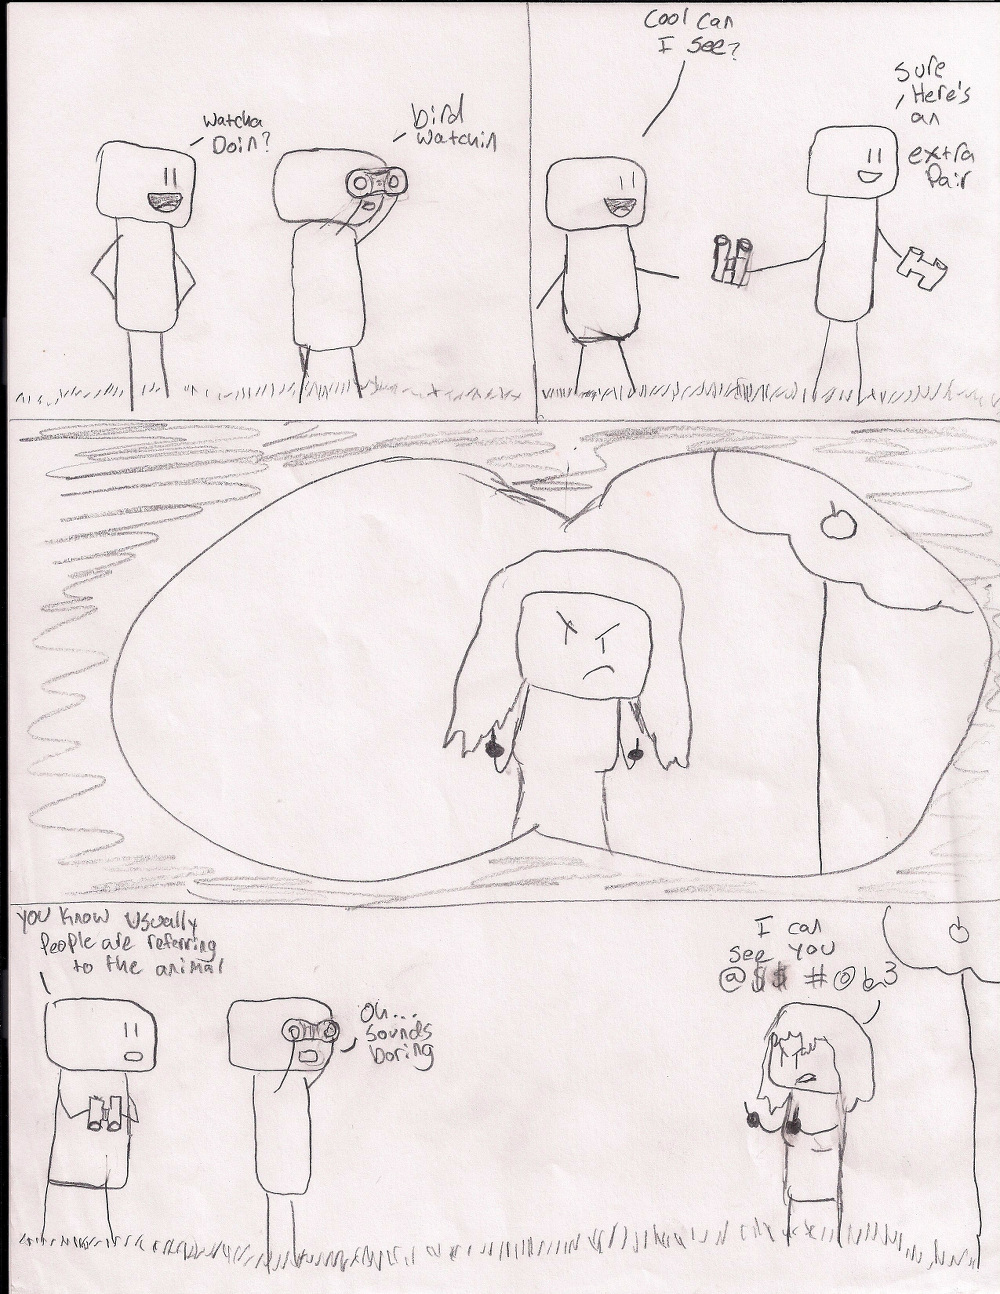 Watcha
Doin?
bird
watchin
Cool can
I see?
Sure
Here's
an
extra
Pair
you know usually
People are referring
to the animal
Oh...
Sounds
boring
I can
see you
@$$ #@b3